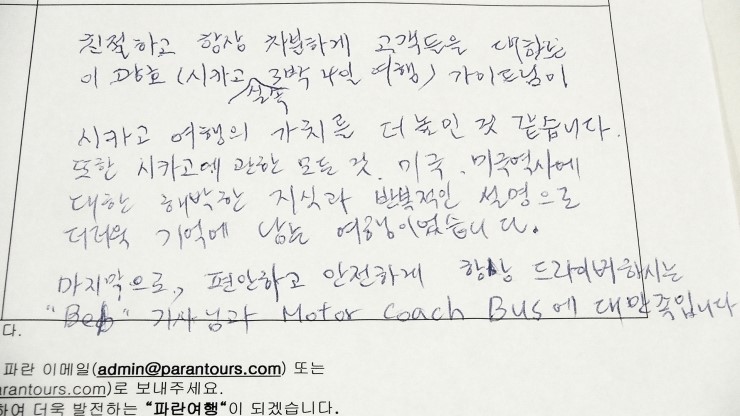 친절하고 항상 차분하게 고객들을 대하는
이 광호 (시카고 실속 3박 4일 여행) 가이드님이
시카고 여행의 가치를 더 높인 것 같습니다.
또한 시카고에 관한 모든 것. 미국, 미국역사에
대한 해박한 지식과 반복적인 설명으로
더더욱 기억에 남는 여행이었습니다.
마지막으로, 편안하고 안전하게 항상 드라이버하시는
" " 기사님과 Motor Coach Bus에 대만족입니다
다.
파란 이메일(admin@parantours.com) 또는
arantours.com)로 보내주세요.
하여 더욱 발전하는 "파란여행"이 되겠습니다.